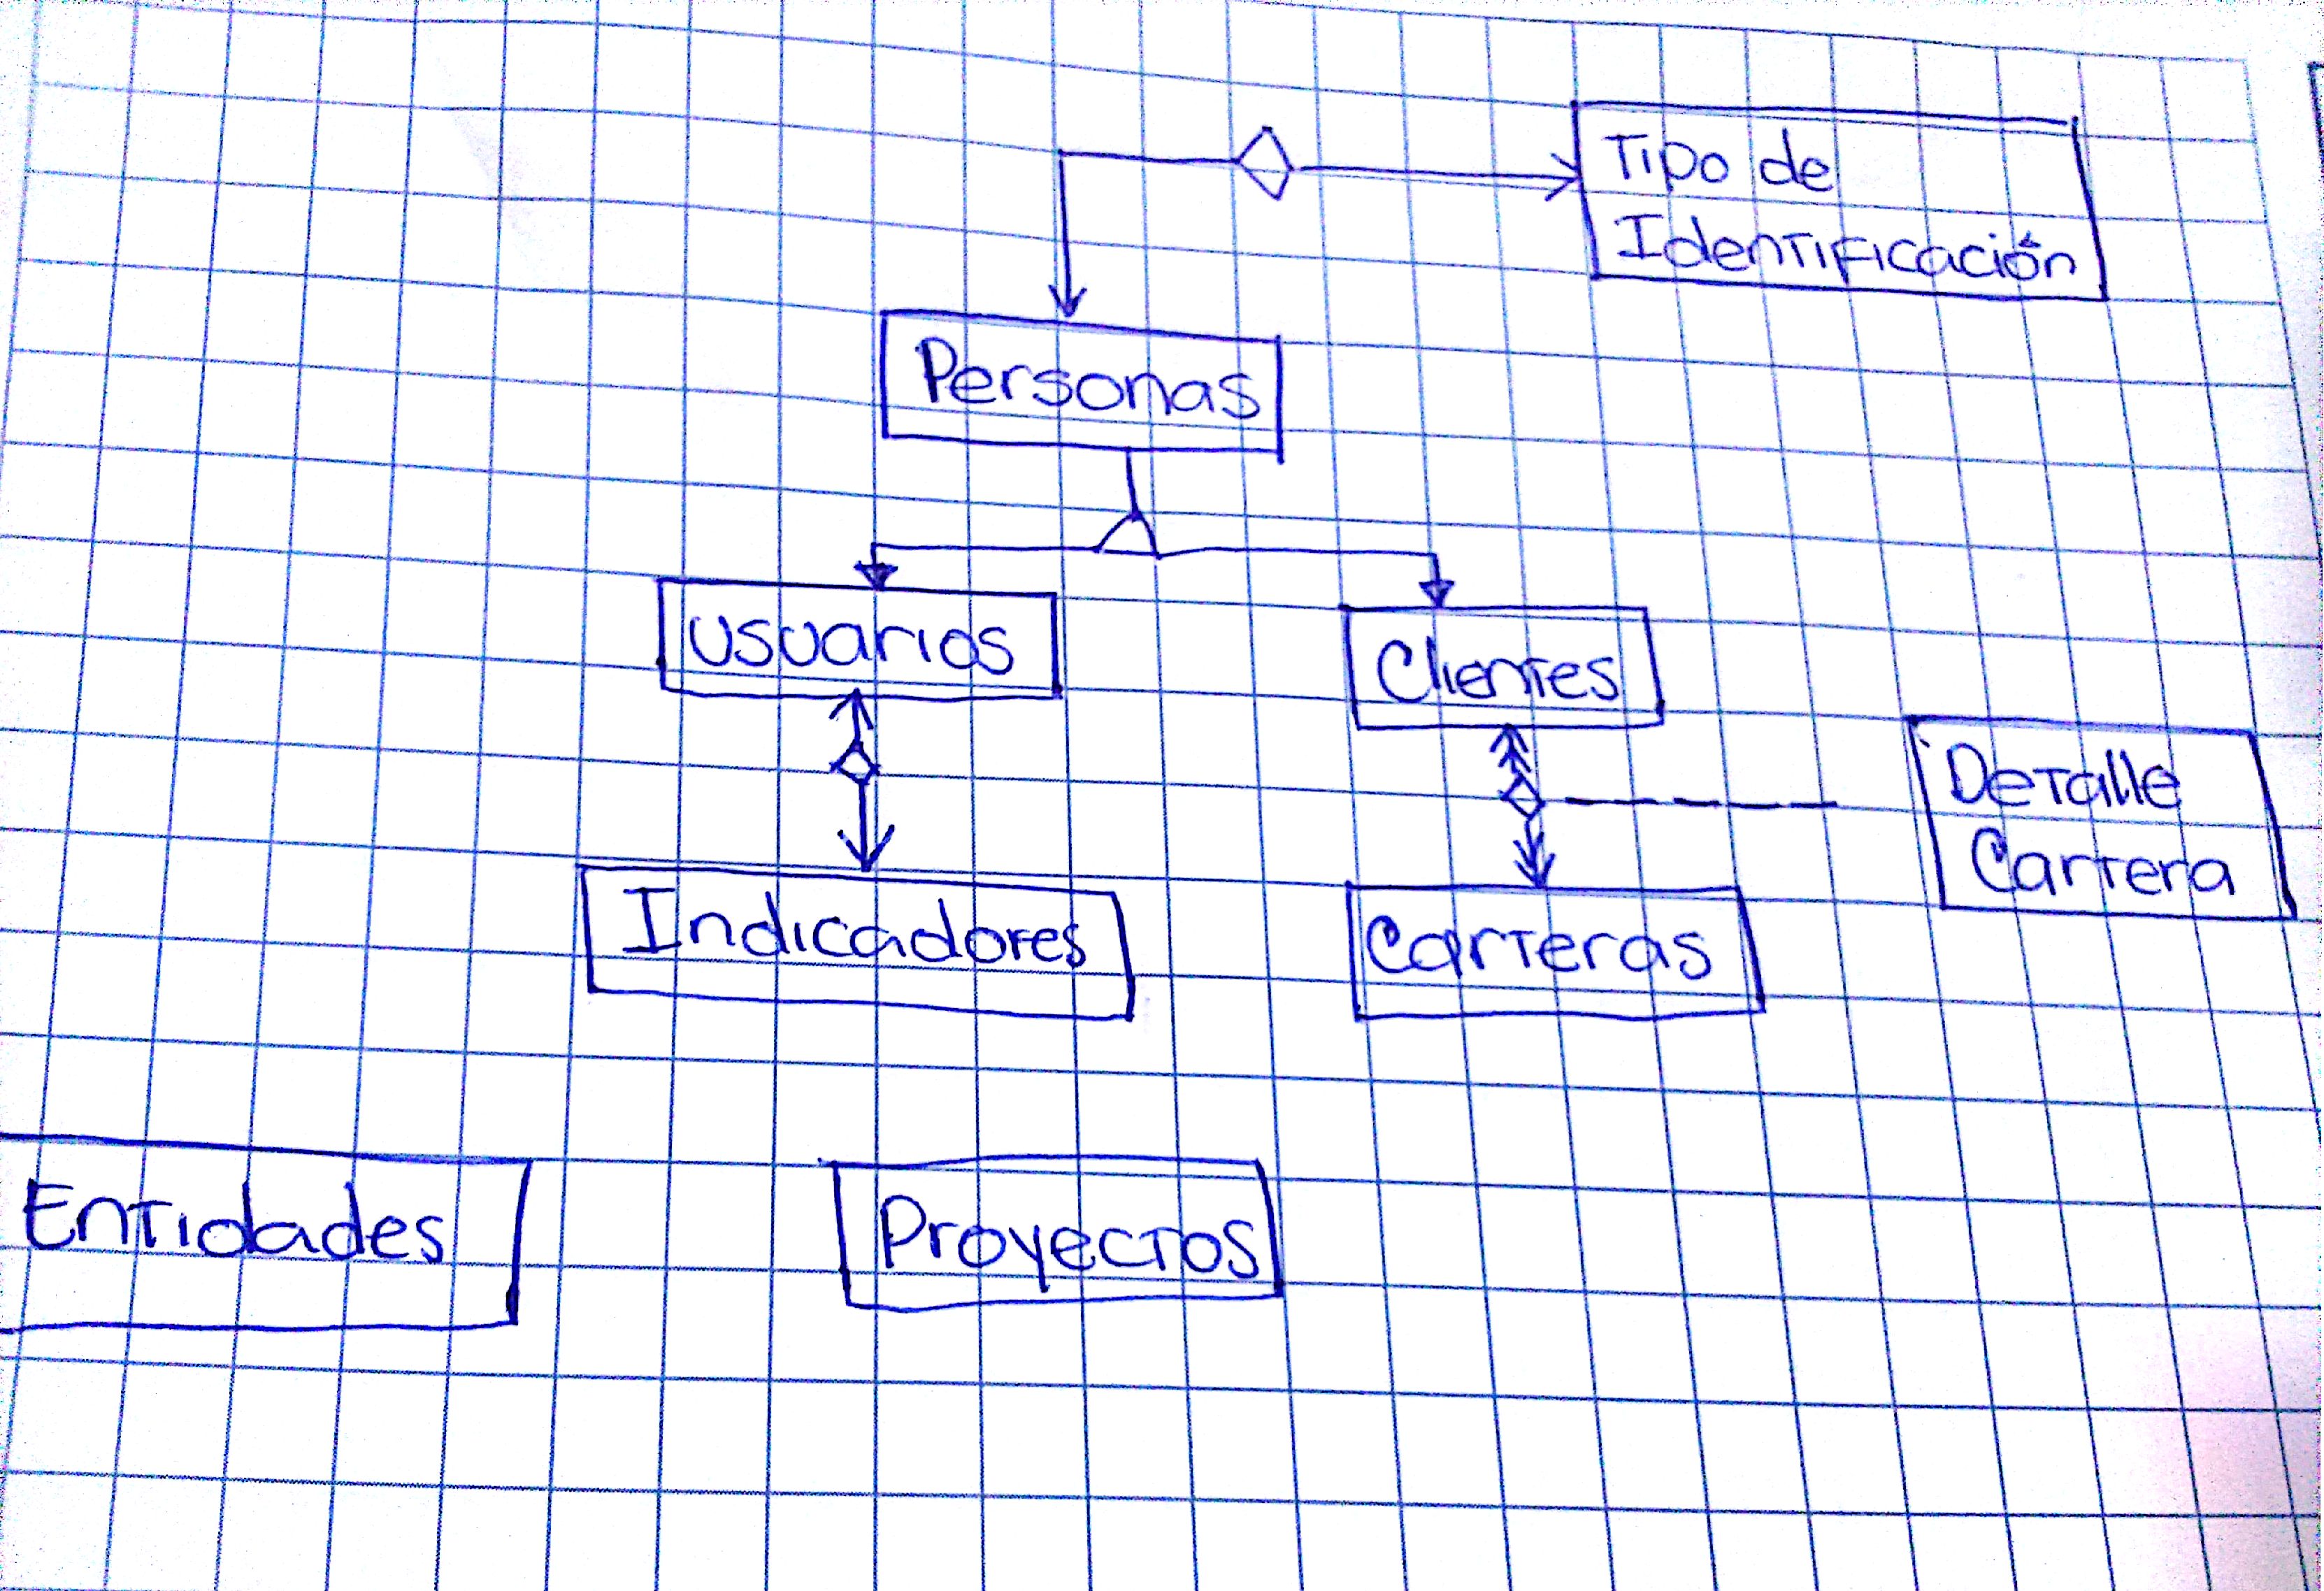 Tipo de
Identificación
Personas
Usuarios
Clientes
Detalle
Cartera
Indicadores
Carteras
Entidades
Proyectos